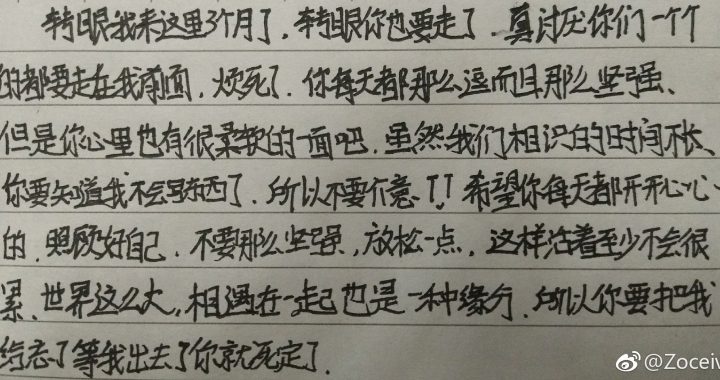 转眼我来这里3个月了，转眼你也要走了．真讨厌你们一个个
的都要走在我前面，烦死了．你每天都那么逗而且那么坚强、
但是你心里也有很柔软的一面吧．虽然我们相识的时间不长、
你要知道我不会写东西了．所以不要介意．TT 希望你每天都开开心心
的．照顾好自己．不要那么坚强，放松一点．这样活着至少不会很
累、世界这么大，相遇在一起也是一种缘分．所以你要把我
给忘了等我出去了你就死定了．
@Zoceiv